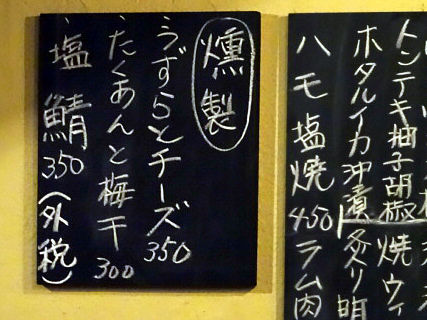 燻製
うずらとチーズ350
たくあんと梅干300
塩鯖350(外税)
トンテキ柚子胡椒焼ウィ
ホタルイカ沖漬炙り
ハモ塩焼450ラム肉